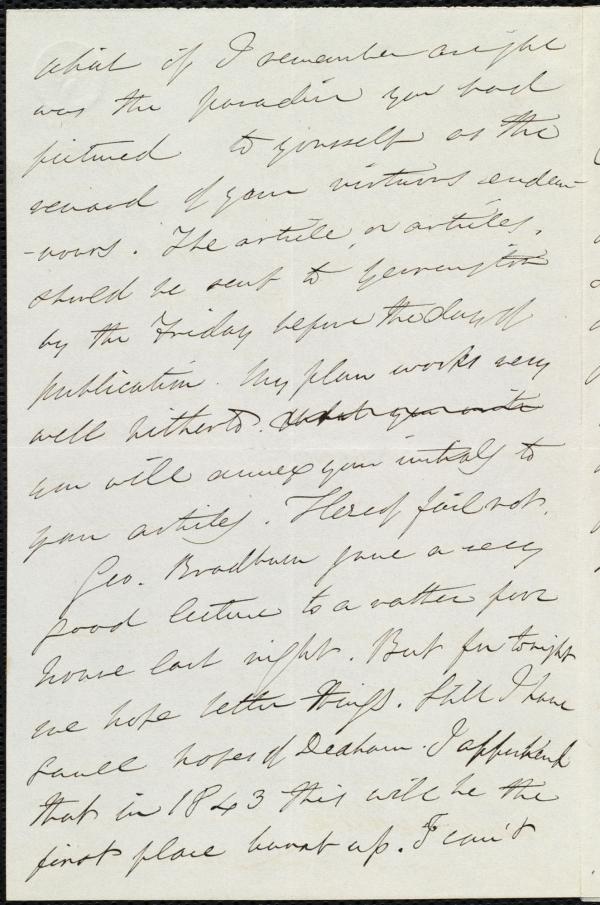 what if I remember aright
was the paradise you had
pictured to yourself as the
reward of your virtuous endea-
-vours. The article, or articles,
should be sent to Yerrington
by the Friday before the day of
publication. My plan works very
well hitherto. What you write
you will annex your initials to
your articles. Hereof fail not.
Geo. Bradburn gave a very
good lecture to a rather poor
house last night. But for tonight
we hope better things. Still I have
small hopes of Dedham. I apprehend
that in 1843 this will be the
first place burnt up. I can't